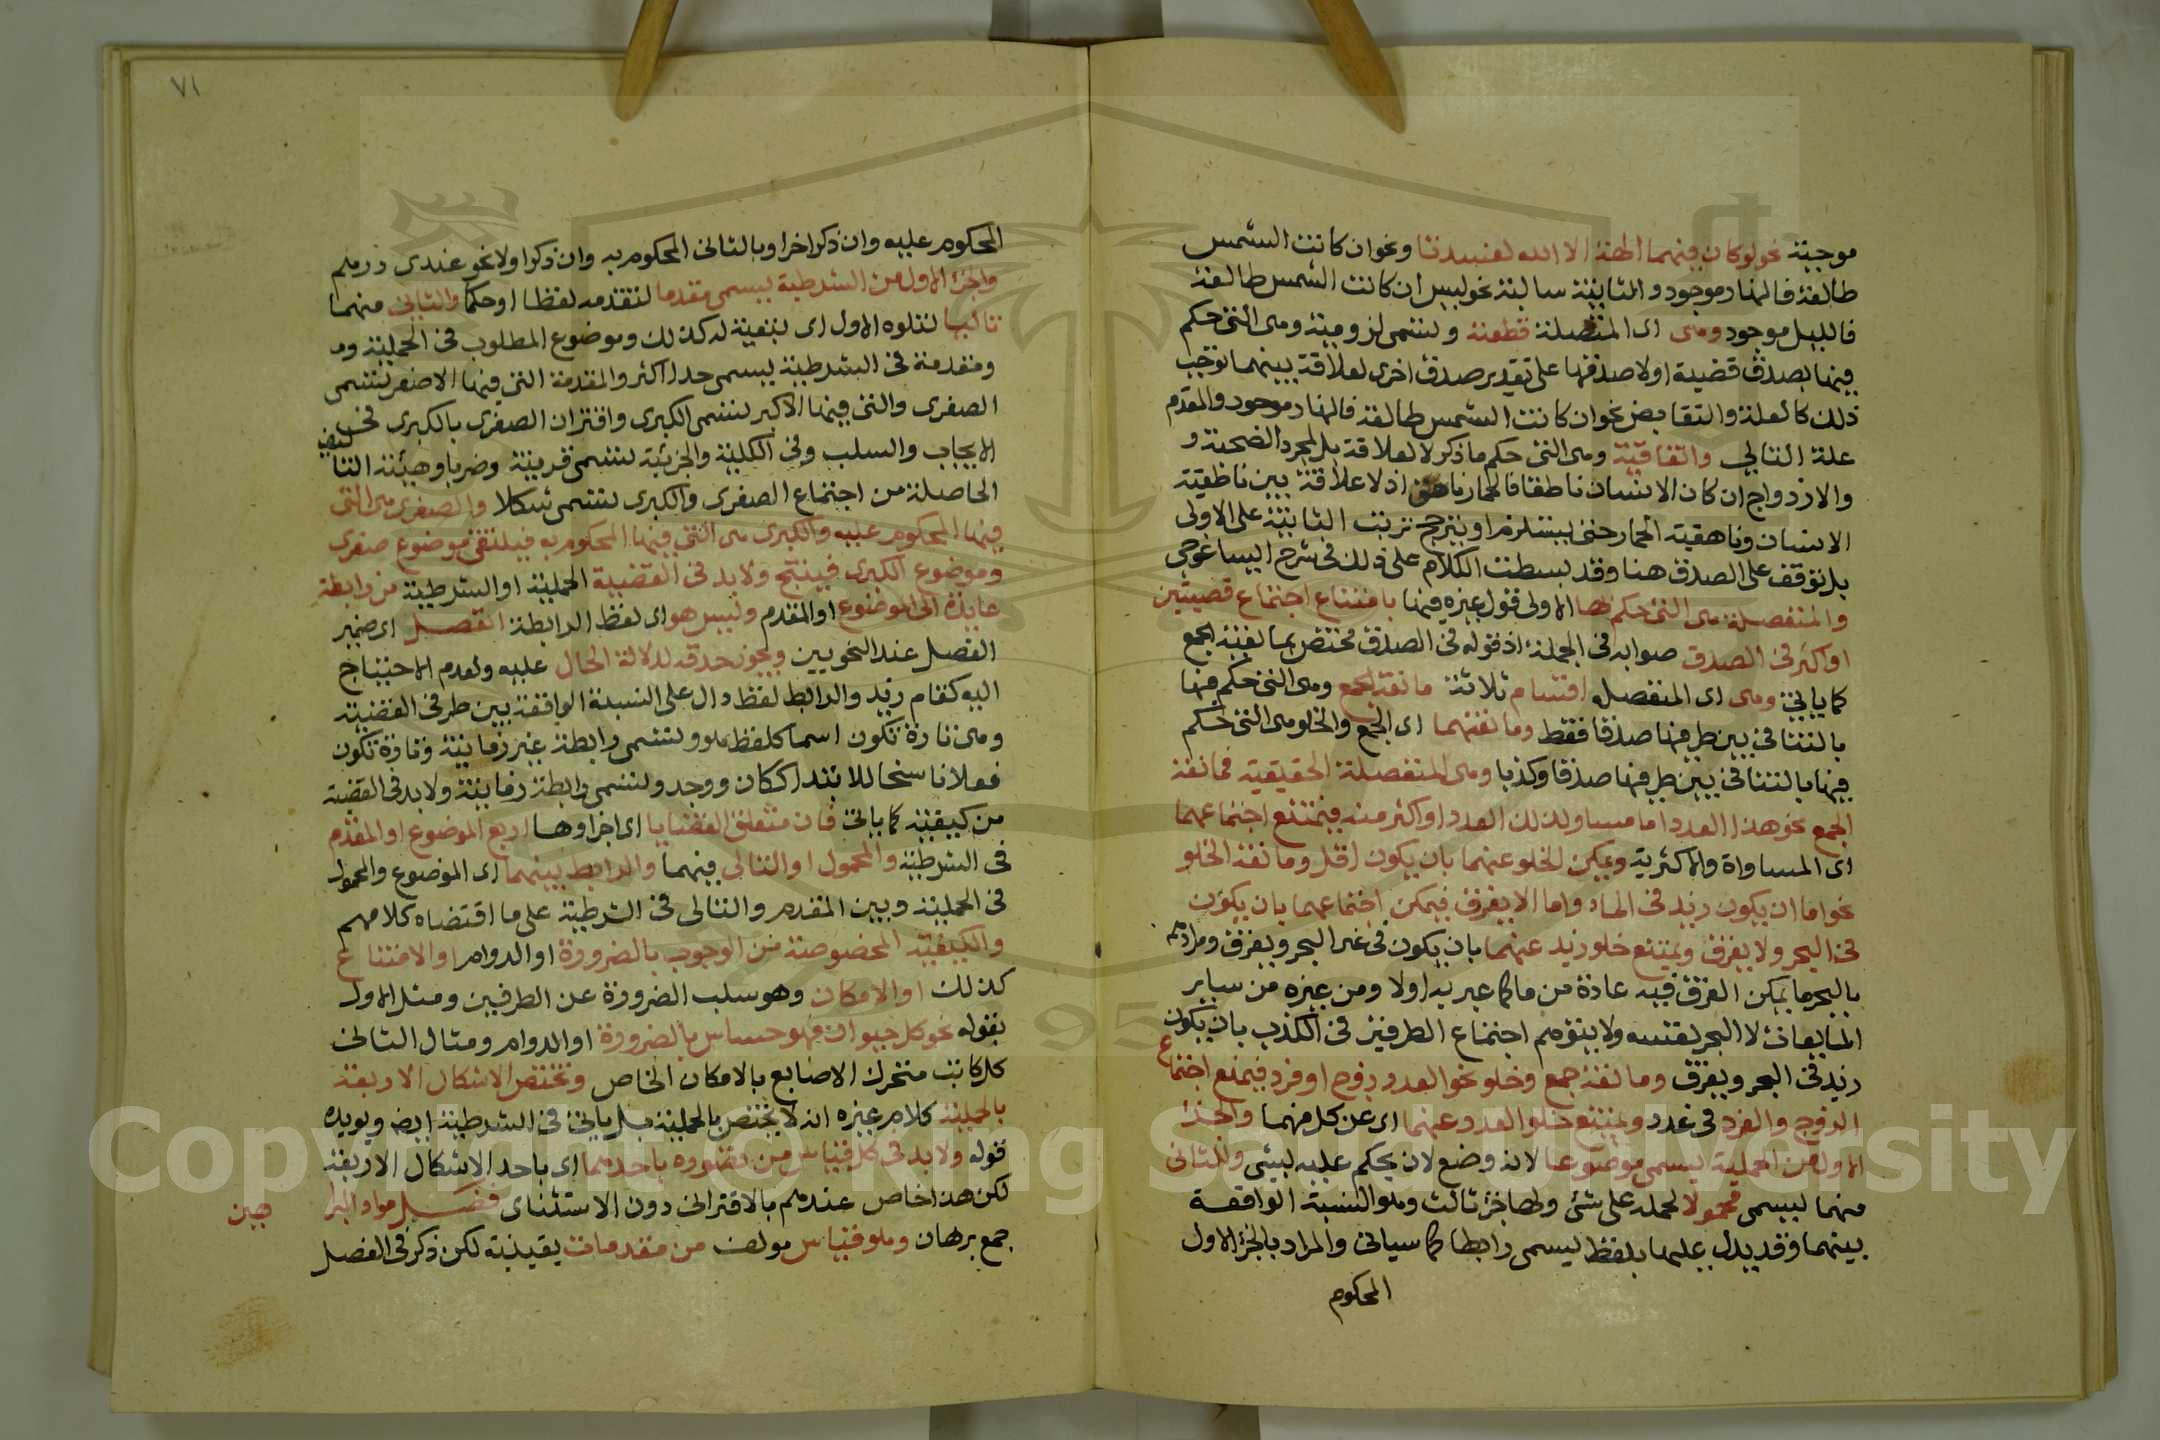 موجبة نحو لو كان فيهما الهة الا الله لفسدتا ونحو ان كانت الشمس
طالعة فالنهار موجود والثانية سالبة نحو ليس ان كانت الشمس طالعة
فالليل موجود وهى اى المتصلة قطعية وتسمى لزومية وهى التى حكم
فيها بصدق قضية اولا صدقها على تقدير صدق اخرى لعلاقة بينهما توجب
ذلك كالعلة والتضايف نحو ان كانت الشمس طالعة فالنهار موجود والمقدم
علة التالي واتفاقية وهى التى حكم ما ذكر لا لعلاقة بل لمجرد الصحبة و
والازدواج ان كان الانسان ناطقا فالحمار ناهق اذ لا علاقة بين ناطقية
الانسان وناهقية الحمار حتى يستلزم او يترجح ترتب الثانية على الاولى
بل توقف على الصدق هنا وقد بسطت الكلام على ذلك فى شرح ايساغوجى
والمنفصلة هى التى حكم لها الاولى قول غيره فيها بامتناع اجتماع قضيتين
او اكثر فى الصدق صوابه فى الجملة اذ قوله فى الصدق مختص بمانعة الجمع
كما ياتى وهى اى المنفصلة اقسام ثلاثة مانعة الجمع وهى التى حكم فيها
بالتنافى بين طرفيها صدقا فقط ومانعتهما اى الجمع والخلو وهى التى حكم
فيها بالتنافى بين طرفيها صدقا وكذبا وهى المنفصلة الحقيقية فمانعة
الجمع نحو هذا العدد اما مساو لذلك العدد او اكثر منه فيمتنع اجتماعهما
اى المساواة والاكثرية ويمكن الخلو عنهما بان يكون اقل ومانعة الخلو
نحو اما ان يكون زيد فى الماء واما الا يغرق فيمكن اجتماعهما بان يكون
فى البحر ولا يغرق ويمتنع خلو زيد عنهما بان يكون فى غير البحر ويغرق ومرادهم
بالبحر ما يمكن الغرق فيه عادة من ماء كما عبر به اولا ومن غيره من ساير
المايعات لا البحر بنفسه ولا يتوهم اجتماع الطرفين فى الكذب بان يكون
زيد فى البحر ويغرق ومانعة جمع وخلو نحو العدد زوج او فرد فيمنع اجتماع
الزوج والفرد فى عدد ويمتنع خلو العدد عنهما اى عن كل منهما والجزء
الاول من الحملية يسمى موضوعا لانه وضع لان يحكم عليه بشى والثانى
منهما يسمى محمولا لحمله على شئ ولها جزء ثالث وهو النسبة الواقعة
بينهما وقد يدل عليها بلفظ يسمى رابطا كما سياتى والمراد بالجزء الاول
المحكوم
٧١
المحكوم عليه وان ذكر اخرا وبالثانى المحكوم به وان ذكر اولا نحو عندى درهم
والجزء الاول من الشرطية يسمى مقدما لتقدمه لفظا او حكما والثانى منهما
تاليا لتلوه الاول اى تبعيته له كذلك وموضوع المطلوب فى الحملية وم
ومقدمة فى الشرطية يسمى حدا اكثر والمقدمة التى فيها الاصغر تسمى
الصغرى والتى فيها الاكبر تسمى الكبرى واقتران الصغرى بالكبرى فى
الايجاب والسلب وفى الكلية والجزئية تسمى قرينة وضربا وهيئة التا
ليف
الحاصلة من اجتماع الصغرى والكبرى تسمى شكلا والصغرى هى التى
فيها المحكوم عليه والكبرى هى التى فيها المحكوم به فيلتقى موضوع صغرى
وموضوع الكبرى فينتج ولا بد فى القضية الحملية او الشرطية من رابطة
عايدة الى الموضوع او المقدم وليس هو اى لفظ الرابطة الفصل اى ضمير
الفصل عند النحويين ويجوز حذفه لدلالة الحال عليه ولعدم الاحتياج
اليه كقام زيد والرابط لفظ دال على النسبة الواقعة بين طرفى القضية
وهى تارة تكون اسما كلفظ هو وتسمى رابطة غير زمانية وتارة تكون
فعلا ناسخا للابتدا ككان ووجد وتسمى رابطة زمانية ولا بد فى القضية
من كيفية كما ياتى فان متعلق القضايا اى اجزاوها اربع الموضوع او المقدم
فى الشرطية والمحمول او التالى فيهما والرابط بينهما اى الموضوع والمحمول
فى الحملية وبين المقدم والتالى فى الشرطية على ما اقتضاه كلامهم
والكيفية المخصوصة من الوجوب بالضرورة او الدوام او الامتناع
كذلك او الامكان وهو سلب الضرورة عن الطرفين ومثل الاول
بقوله نحو كل حيوان فهو حساس بالضرورة او الدوام ومثال الثانى
كل كاتب متحرك الاصابع بالامكان الخاص وتختص الاشكال الاربعة
بالحملية كلام غيره انه لا يختص بالحملية بل ياتى فى الشرطية ايضا ويويده
قوله ولا بد فى كل قياس من تصوره باحدهما اى باحد الاشكال الاربعة
لكن هذا خاص عندهم بالاقترانى دون الاستثناى فصل مواد البرا
هين
جمع برهان وهو قياس مولف من مقدمات يقينية لكن ذكر فى الفصل
Copyright © King Saud University